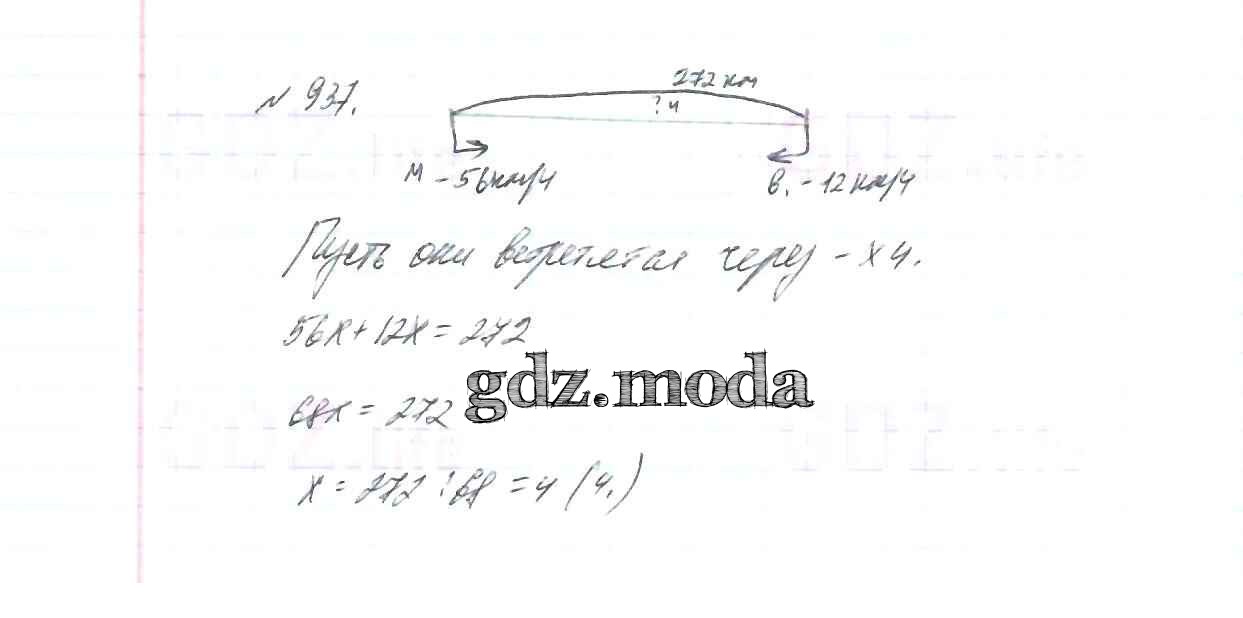 № 937.
272 км
? ч
М - 56 км/ч
В. - 12 км/ч
Пусть они встретятся через - х ч.
56х + 12х = 272
gdz.moda
68х = 272
х = 272 : 68 = 4 (ч.)